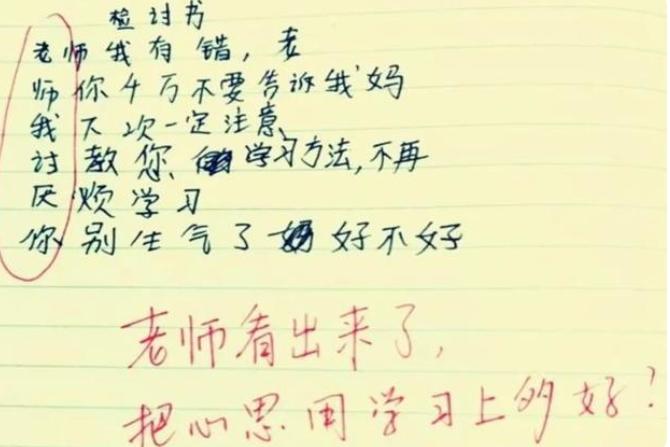 检讨书
老师我有错，老
师你千万不要告诉我妈
我下次一定注意
讨教您 学习方法，不再
厌烦学习
你别生气了 好不好
老师看出来了，
把心思用学习上多好？